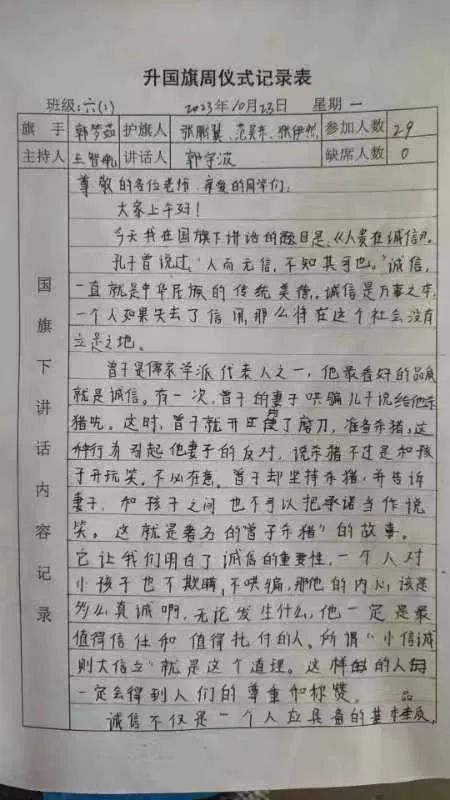 升国旗周仪式记录表
班级:六(1) 2023年10月23日 星期一
旗手 郭梦茹 护旗人 张鹏翼、范昊东、张伊然 参加人数 29
主持人 王智帆 讲话人 郭宇波 缺席人数 0
国旗下讲话内容记录
尊敬的各位老师、亲爱的同学们:
大家上午好!
今天我在国旗下讲话的题目是《人贵在诚信》。
孔子曾说过,“人而无信,不知其可也。”诚信,
一直就是中华民族的传统美德。诚信是万事之本,
一个人如果失去了信用,那么将在这个社会没有
立足之地。
曾子是儒家学派代表人之一,他最看好的品质
就是诚信。有一次,曾子的妻子哄骗儿子说给他杀
猪吃。这时,曾子就开磨刀,准备杀猪,这
种行为引起他妻子的反对,说杀猪不过是和孩
子开玩笑,不必在意。曾子却坚持杀猪,并告诉
妻子,和孩子之间也不可以把承诺当作说
笑。这就是著名的“曾子杀猪”的故事。
它让我们明白了诚信的重要性,一个人对
小孩子也不欺瞒,不哄骗,那他的内心该是
多么真诚啊,无论发生什么,他一定是最
值得信任和值得托付的人。所谓“小信诚
则大信立”就是这个道理。这样的人
一定会得到人们的尊重和称赞。
诚信不仅是一个人应具备的基本品质,